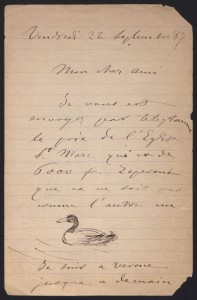 Vendredi 22 Septembre 87
Mon cher ami
Je vous ait
envoyer par telegramme
le prix de l'Eglise
St Marc qui est de
6000 fr
que ca ne soit pas
comme l'autre un
Je suis a verone
jusqua a demain